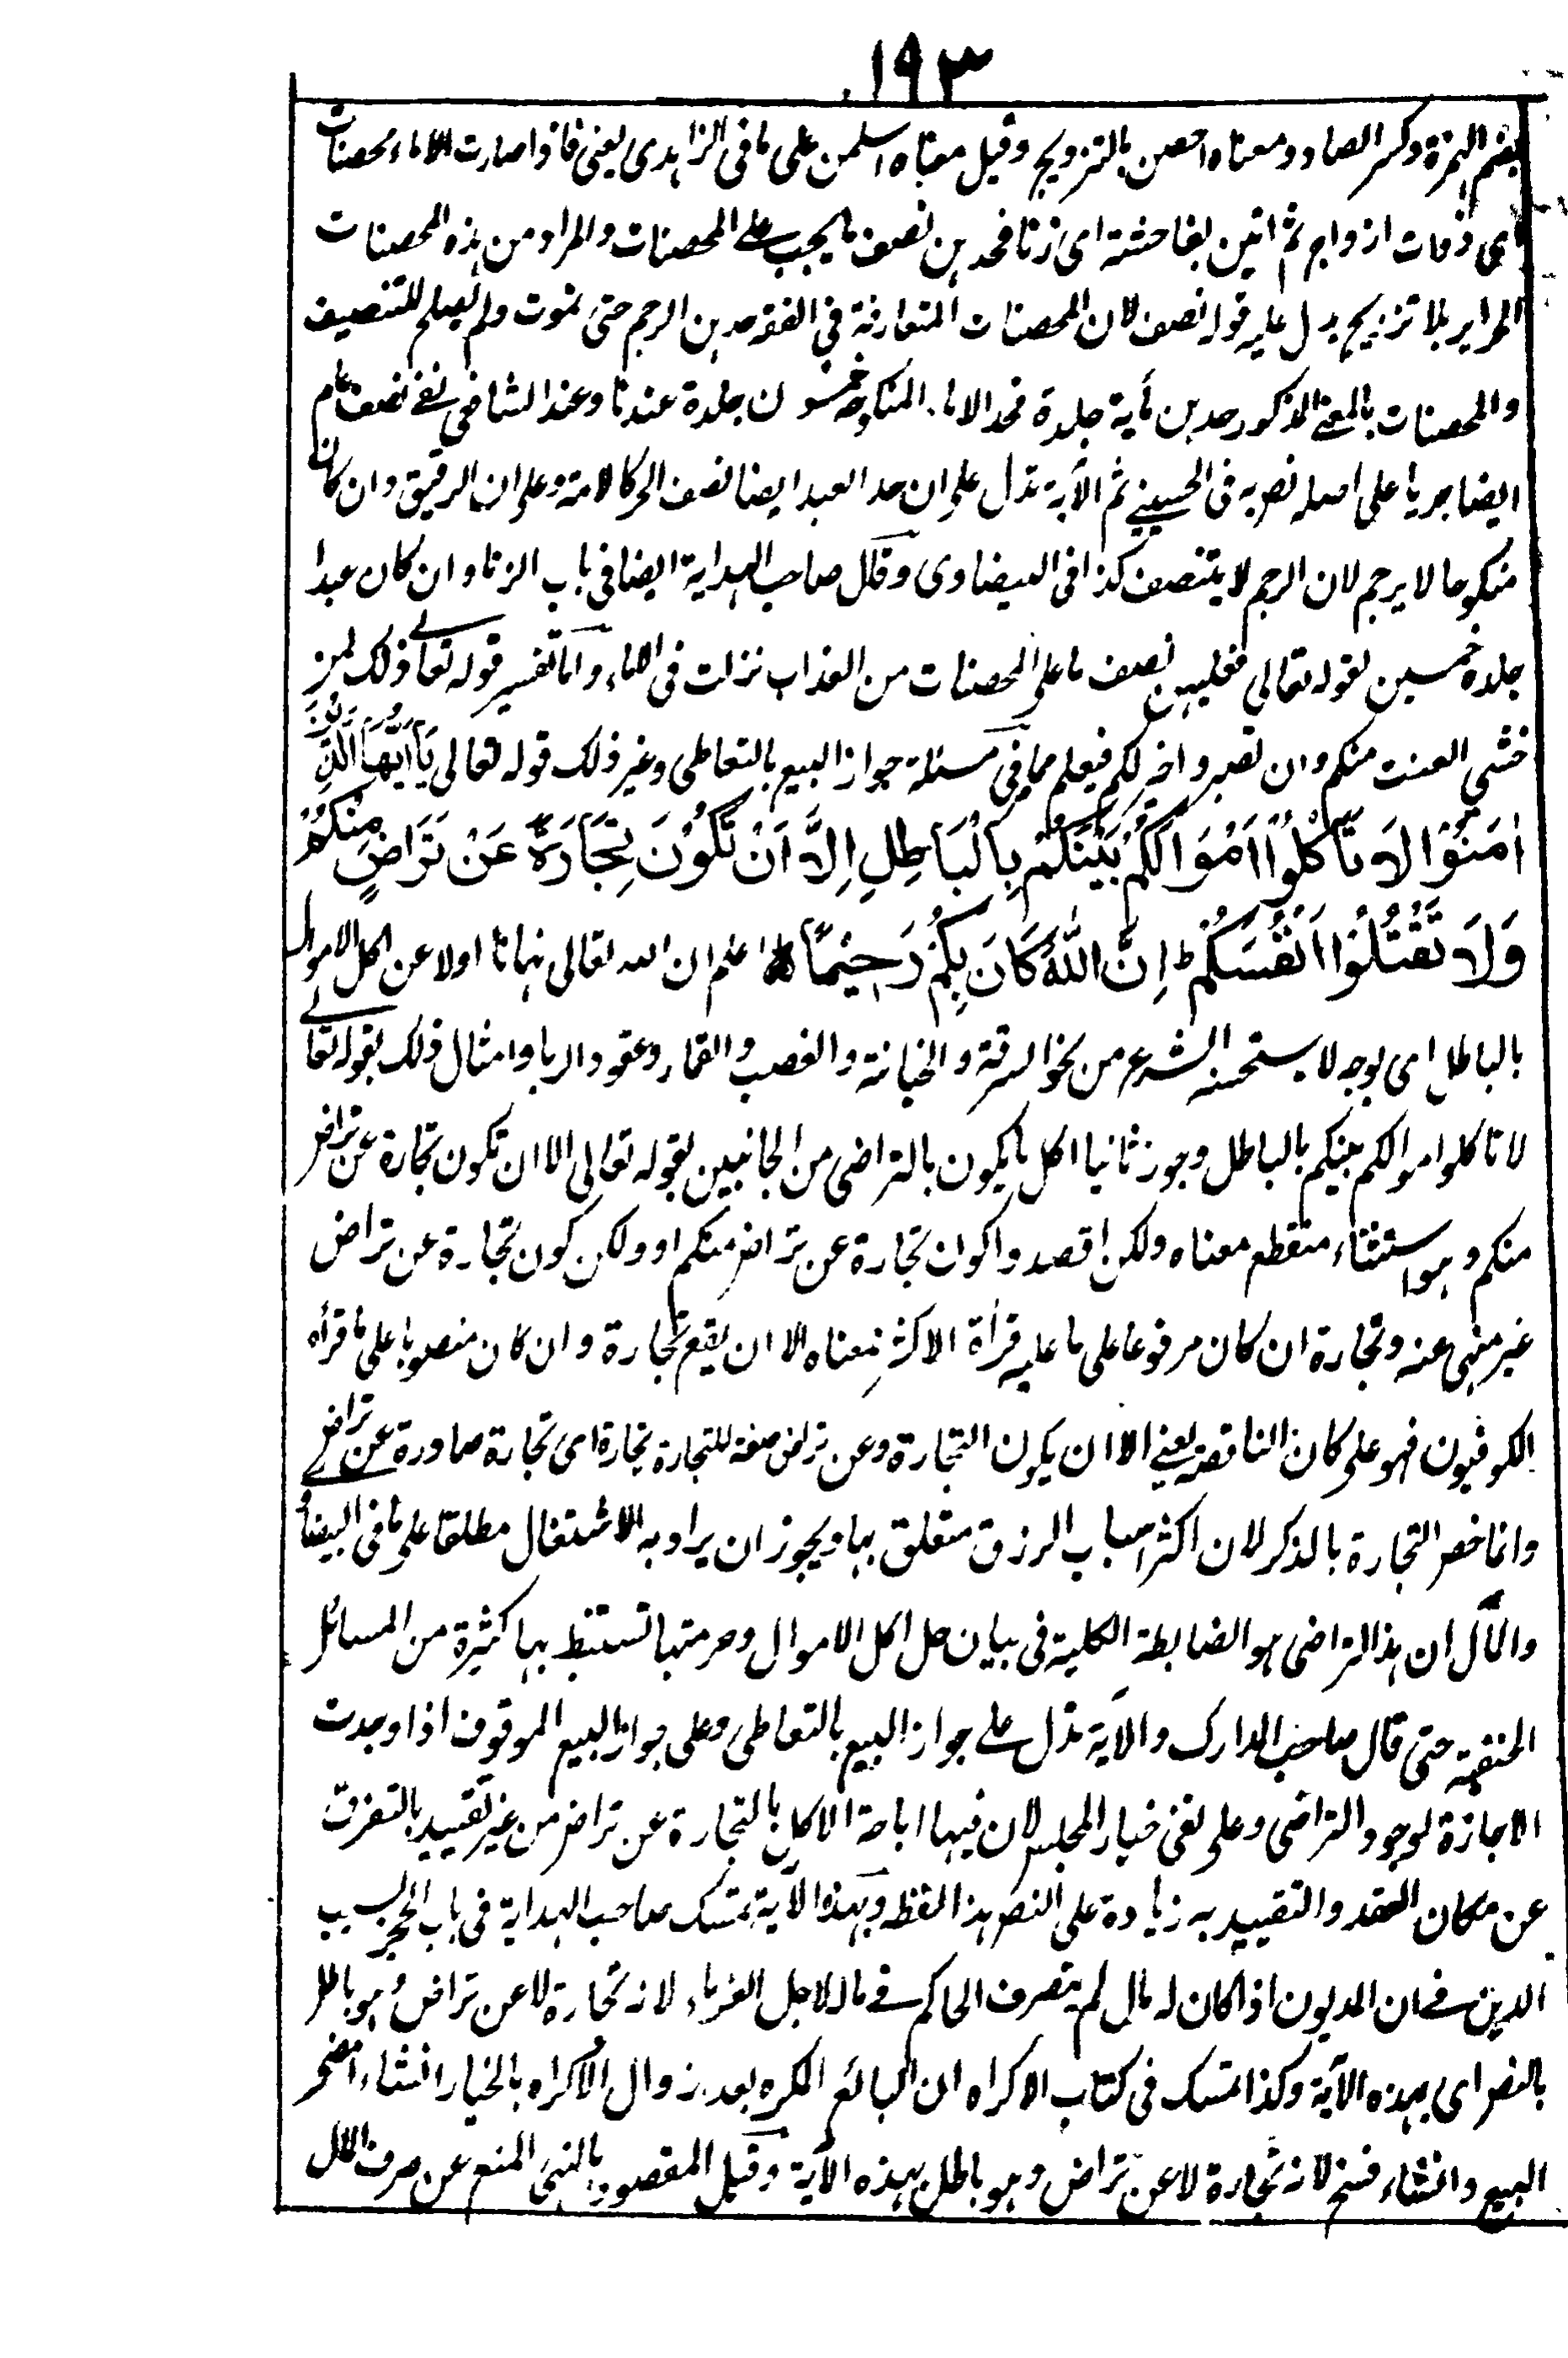 ١٩٣
بضم الهمزة وكسر الصاد ومعناه احصن بالتزويج وقيل معناه اسلمن على ما فى الزاهدى يعنى فاذا صارت الاماء محصنات
اى ذوات ازواج ثم اتين بفاحشة اى زنا فحدهن نصف ما يجب على المحصنات والمراد من هذه المحصنات
الحراير بلا تزويج يدل عليه قوله نصف لان المحصنات المتعارفة فى الفقه حدهن الرجم حتى تموت ولم يصلح للتنصيف
والمحصنات بالمعنى المذكور حدهن مأية جلدة فحد الاماء المنكوحة خمسون جلدة عندنا وعند الشافعى نفى نصف عام
ايضا جريا على اصله نص به فى الحسينى ثم الآية تدل على ان حد العبد ايضا نصف الحر كالامة وعلى ان الرقيق وان كان
منكوحا لا يرجم لان الرجم لا يتنصف كذا فى البيضاوى وقال صاحب الهداية ايضا فى باب الزنا وان كان عبدا
جلده خمسين لقوله تعالى فعليهن نصف ما على المحصنات من العذاب نزلت فى الاماء واما تفسير قوله تعالى ذلك لمن
خشى العنت منكم وان تصبروا خير لكم فيعلم مما فى مسئلة جواز البيع بالتعاطى وغير ذلك قوله تعالى يَا اَيُّهَا الَّذِيْنَ
اٰمَنُوْا لَا تَأْكُلُوْا اَمْوَالَكُمْ بَيْنَكُمْ بِالْبَاطِلِ اِلَّا اَنْ تَكُوْنَ تِجَارَةً عَنْ تَرَاضٍ مِنْكُمْ
وَلَا تَقْتُلُوْا اَنْفُسَكُمْ ط اِنَّ اللّٰهَ كَانَ بِكُمْ رَحِيْمًا اعلم ان الله تعالى نهانا اولا عن اكل الاموال
بالباطل اى بوجه لا يستحسنه الشرع من نحو السرقة والخيانة والغصب والقمار وعقود الربا وامثال ذلك بقوله تعالى
لا تاكلوا اموالكم بينكم بالباطل وجوز ثانيا اكل ما يكون بالتراضى من الجانبين بقوله تعالى الا ان تكون تجارة عن تراض
منكم وهو استثناء منقطع معناه ولكن اقصدوا كون تجارة عن تراض منكم او ولكن كون تجارة عن تراض
غير منهى عنه وتجارة ان كان مرفوعا على ما عليه قرأة الاكثر فمعناه الا ان يقع تجارة وان كان منصوبا على ما قرأه
الكوفيون فهو على كان الناقصة يعنى الا ان يكون التجارة وعن تراض صفة للتجارة تجارة اى تجارة صادرة عن تراض
وانما خص التجارة بالذكر لان اكثر اسباب الرزق متعلق بها ويجوز ان يراد به الاشتغال مطلقا على ما فى البيضا
والمآل ان هذا التراضى هو الضابطة الكلية فى بيان حل اكل الاموال وحرمتها تستنبط بها كثيرة من المسائل
الحنفية حتى قال صاحب المدارك والآية تدل على جواز البيع بالتعاطى وعلى جواز البيع الموقوف اذا وجدت
الاجازة لوجود التراضى وعلى نفى خيار المجلس لان فيها اباحة الاكل بالتجارة عن تراض من غير تقييد بالتفرق
عن مكان العقد والتقييد به زيادة على النص هذا لفظه وبهذه الآية تمسك صاحب الهداية فى باب الحجر بسبب
الدين فى ان المديون اذا كان له مال لم يتصرف الحاكم فى ماله لاجل الغرماء لانه تجارة لا عن تراض وهو باطل
بالنص اى بهذه الآية وكذا تمسك فى كتاب الاكراه ان البائع المكره بعد زوال الاكراه بالخيار انشاء امضى
البيع وانشاء فسخ لانه تجارة لا عن تراض وهو باطل بهذه الآية وقيل المقصود بالنهى المنع عن صرف المال